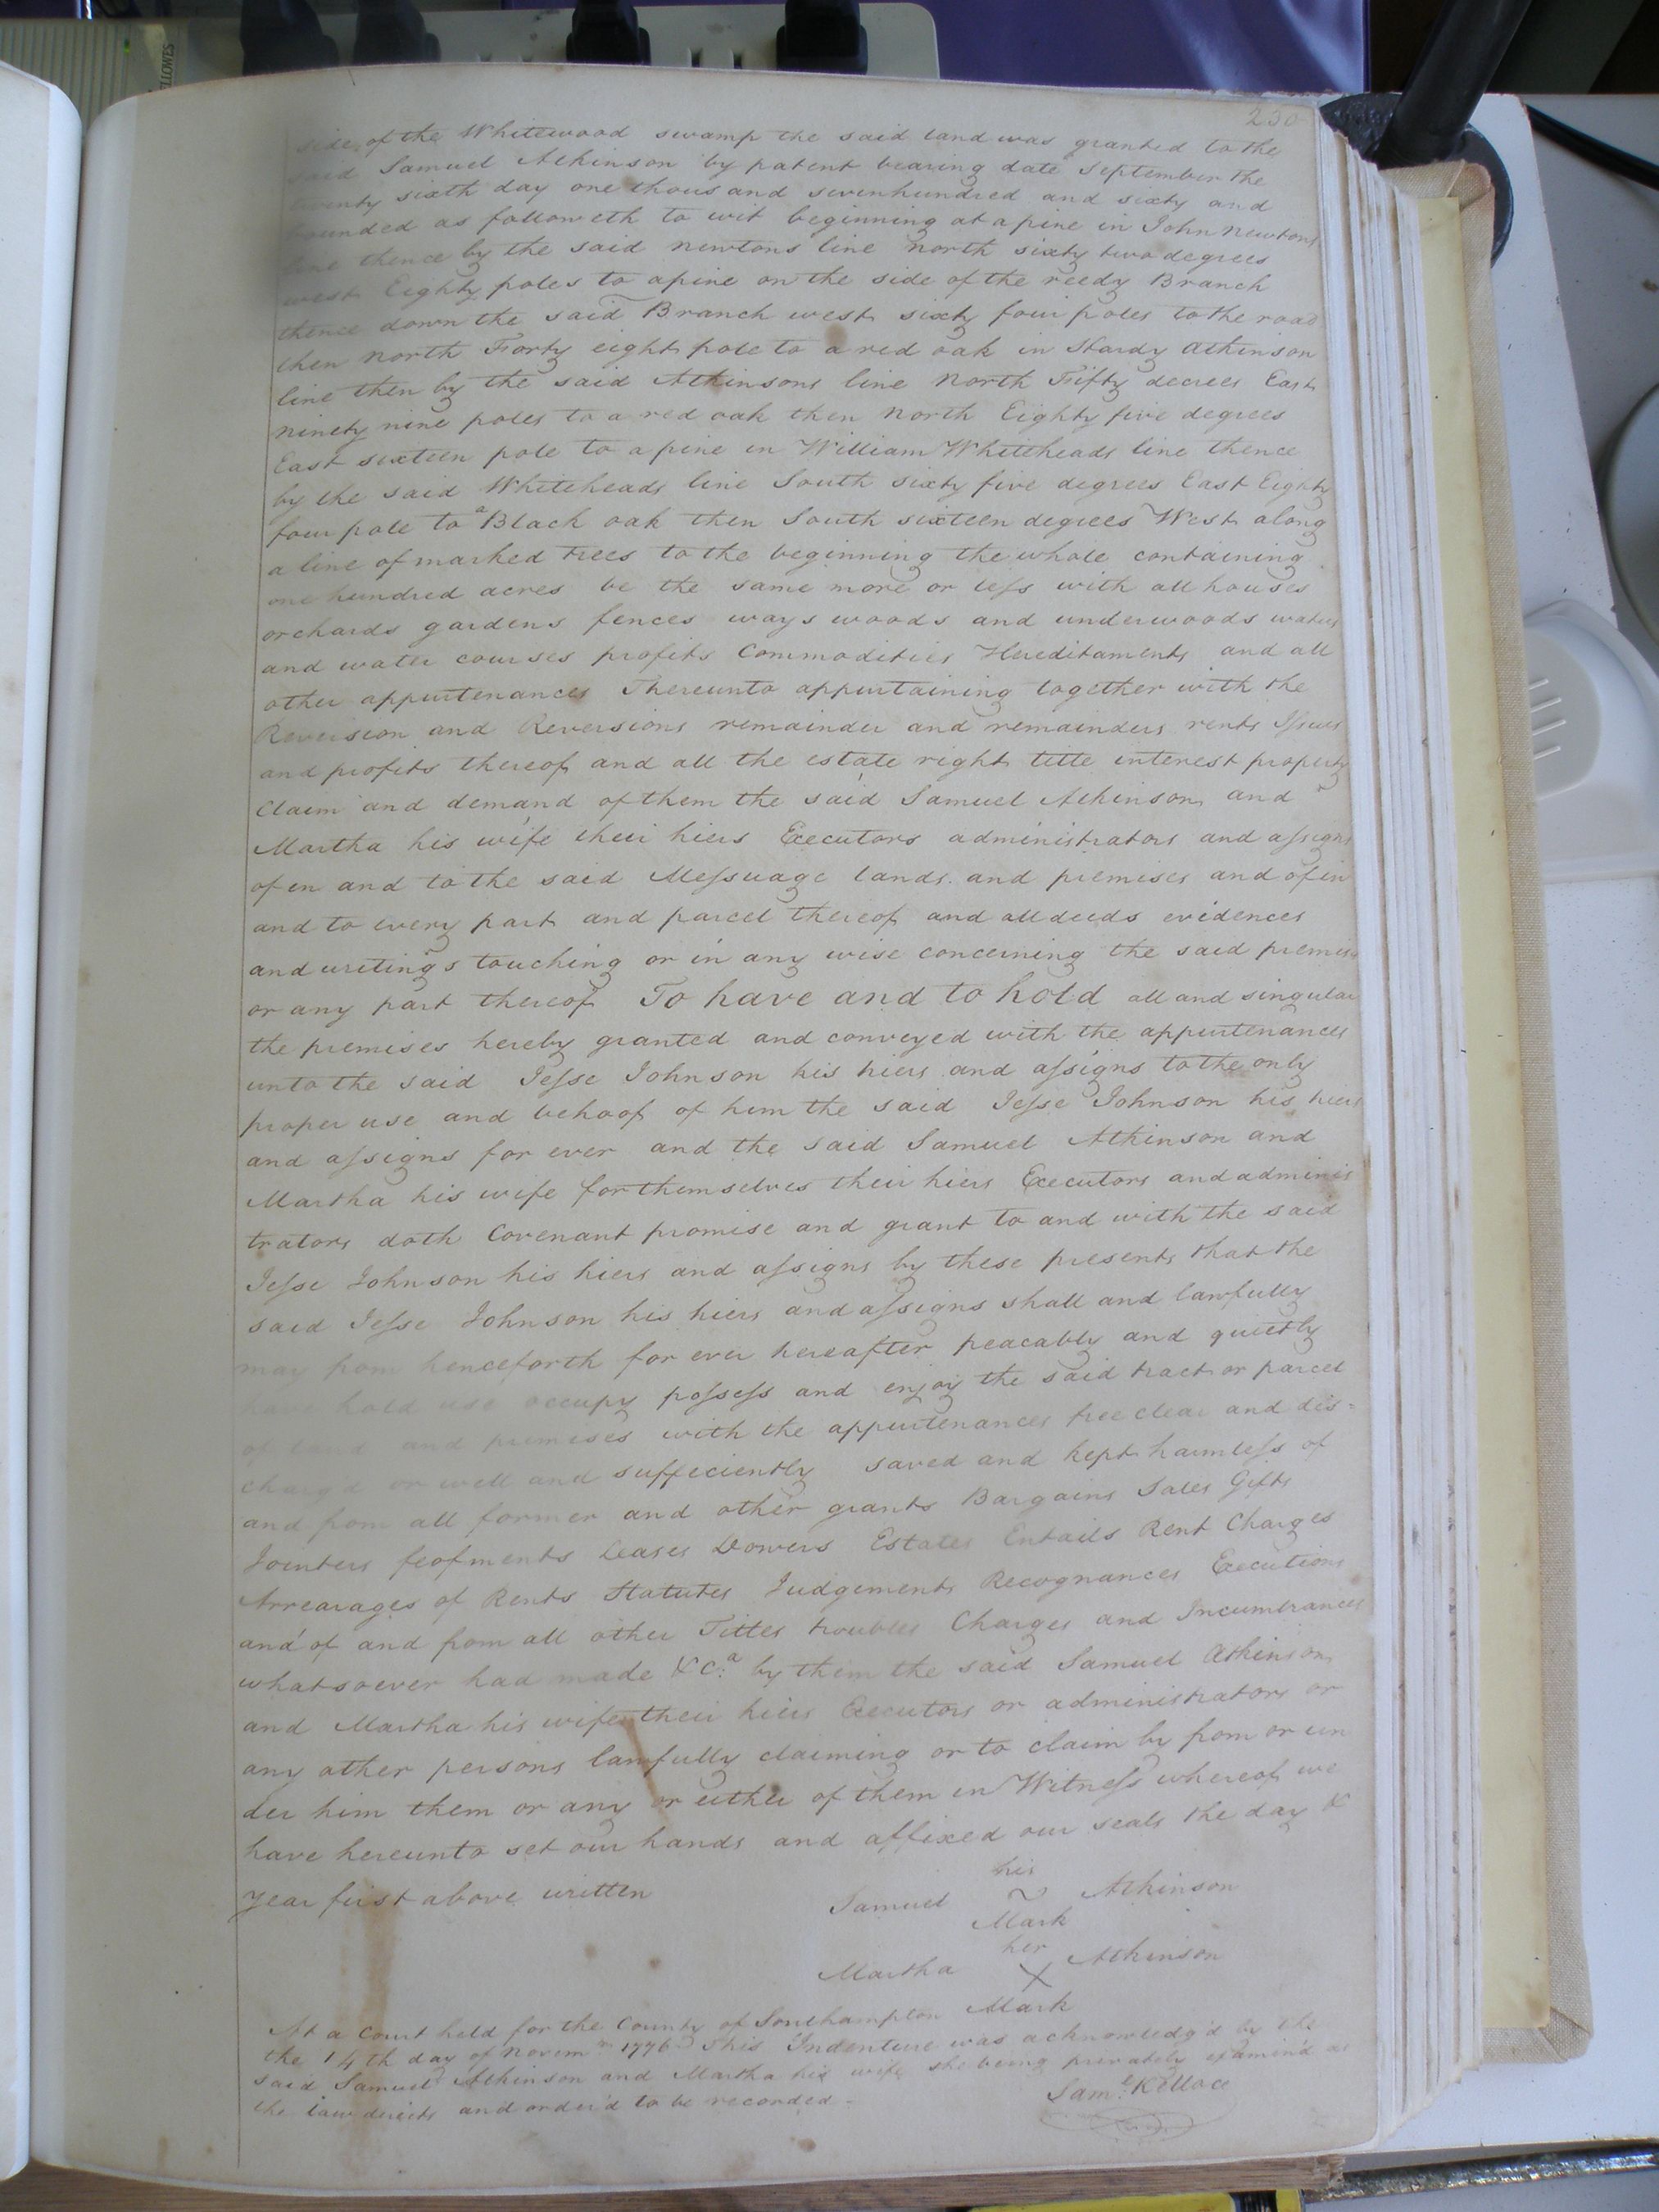 230
side of the Whitewood swamp the said land was granted to the
said Samuel Atkinson by patent bearing date September the
twenty sixth day one thousand sevenhundred and sixty and
bounded as followeth to wit beginning at a pine in John Newtons
line thence by the said newtons line north sixty two degrees
west Eighty poles to a pine on the side of the reedy Branch
thence down the said Branch west sixty four poles to the road
then north Forty eight pole to a red oak in Hardy Atkinson
line then by the said Atkinsons line North Fifty decrees East
ninety nine poles to a red oak then north Eighty five degrees
East sixteen pole to a pine in William Whiteheads line thence
by the said Whiteheads line South sixty five degrees East Eighty
four pole to a Black oak then South sixteen degrees West along
a line of marked trees to the beginning the whole containing
one hundred acres be the same more or less with all houses
orchards gardens fences ways woods and underwoods waters
and water courses profits Commodities Hereditaments and all
other appurtenances Thereunto appurtaining together with the
Reversion and Reversions remainder and remainders rents Issues
and profits thereof and all the estate right title interest property
Claim and demand of them the said Samuel Atkinson and
Martha his wife their hiers Executors administrators and assigns
of en and to the said Messuage lands and premises and of in
and to every part and parcel thereof and all deeds evidences
and writings touching or in any wise concerning the said premises
or any part thereof To have and to hold all and singular
the premises hereby granted and conveyed with the appurtenances
unto the said Jesse Johnson his hiers and assigns to the only
proper use and behoof of him the said Jesse Johnson his hiers
and assigns for ever and the said Samuel Atkinson and
Martha his wife for themselves their hiers Executors and adminis
trators doth Covenant promise and grant to and with the said
Jesse Johnson his hiers and assigns by these presents that the
said Jesse Johnson his hiers and assigns shall and lawfully
may from henceforth for ever hereafter peacably and quietly
have hold use occupy possess and enjoy the said tract or parcel
of land and premises with the appurtenances free clear and dis=
charg'd or well and sufficiently saved and kept harmless of
and from all former and other grants Bargains Sales Gifts
Jointers feofments leases Dowers Estates Entails Rent Charges
Arrearages of Rents Statutes Judgements Recognances Executions
and of and from all other Titles troubles Charges and Incumbrances
whatsoever had made &c:a by them the said Samuel Atkinson
and Martha his wife their hiers Executors or administrators or
any other persons lawfully claiming or to claim by from or un
der him them or any or either of them in Witness whereof we
have hereunto set our hands and affixed our seals the day &
year first above written
his
Samuel ~ Atkinson
Mark
her
Martha X Atkinson
Mark
At a Court held for the County of Southampton
the 14th day of Novemr 1776 This Indenture was acknowledg'd by the
said Samuel Atkinson and Martha his wife she being privately examin'd as
the law directs and order'd to be recorded -
Saml Kello cc